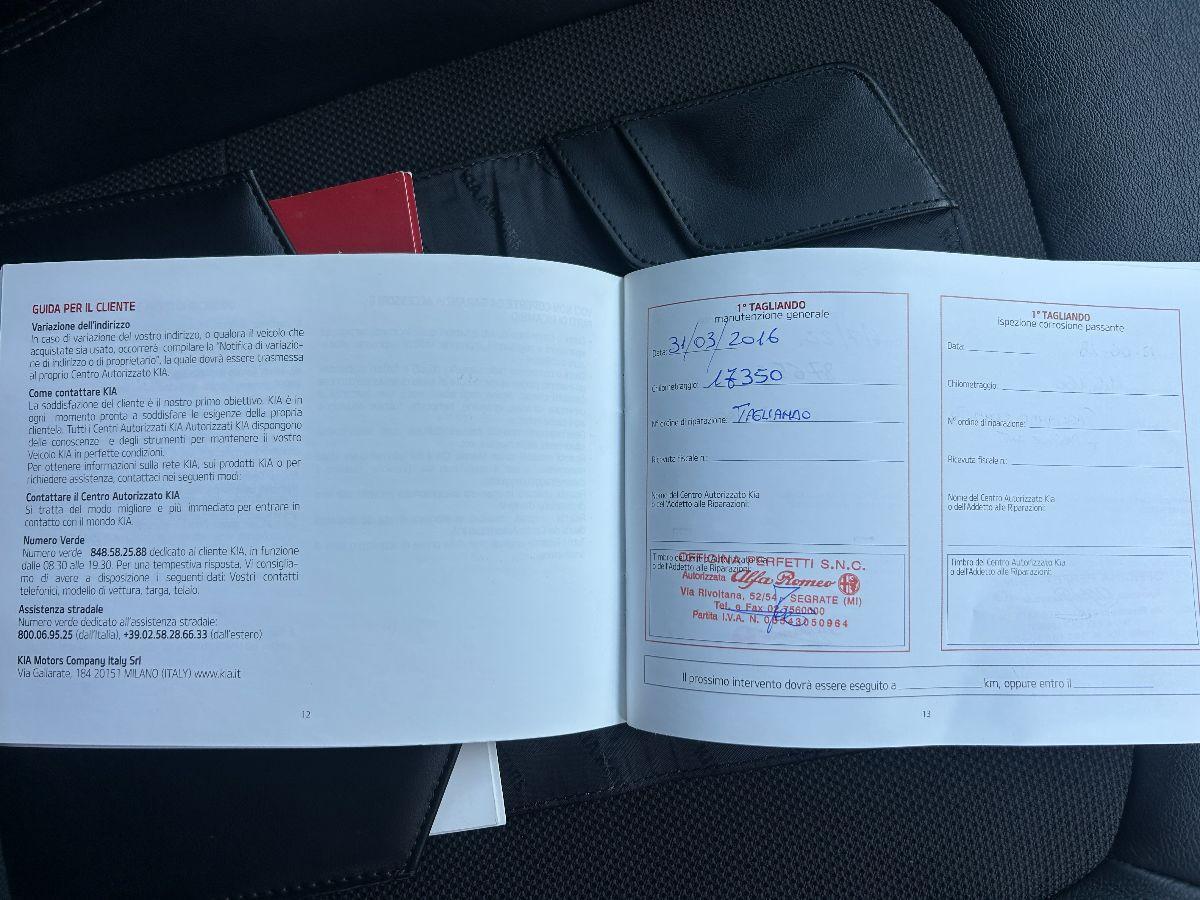 GUIDA PER IL CLIENTE
Variazione dell'indirizzo
In caso di variazione del vostro indirizzo, o qualora il veicolo che
acquistate sia usato, occorrerà compilare la "Notifica di variazio-
ne di indirizzo o di proprietario", la quale dovrà essere trasmessa
al proprio Centro Autorizzato KIA.
Come contattare KIA
La soddisfazione del cliente è il nostro primo obiettivo. KIA è in
ogni momento pronta a soddisfare le esigenze della propria
clientela. Tutti i Centri Autorizzati KIA Autorizzati KIA dispongono
delle conoscenze e degli strumenti per mantenere il vostro
Veicolo KIA in perfette condizioni.
Per ottenere informazioni sulla rete KIA, sui prodotti KIA o per
richiedere assistenza, contattaci nei seguenti modi:
Contattare il Centro Autorizzato KIA
Si tratta del modo migliore e più immediato per entrare in
contatto con il mondo KIA.
Numero Verde
Numero verde 848.58.25.88 dedicato al cliente KIA, in funzione
dalle 08.30 alle 19.30. Per una tempestiva risposta, Vi consiglia-
mo di avere a disposizione i seguenti dati: Vostri contatti
telefonici, modello di vettura, targa, telaio.
Assistenza stradale
Numero verde dedicato all'assistenza stradale:
800.06.95.25 (dall'Italia), +39.02.58.28.66.33 (dall'estero)
KIA Motors Company Italy Srl
Via Gallarate, 184 20151 MILANO (ITALY) www.kia.it
12
1° TAGLIANDO
manutenzione generale
Data: 31/03/2016
Chilometraggio: 17350
N° ordine di riparazione: TAGLIANDO
Ricevuta fiscale n.:
Nome del Centro Autorizzato Kia
o dell'Addetto alle Riparazioni:
Timbro del Centro Autorizzato Kia
o dell'Addetto alle Riparazioni:
OFFICINA PERFETTI S.N.C.
Autorizzata Alfa Romeo
Via Rivoltana, 52/54 - SEGRATE (MI)
Tel. e Fax 02.7560000
Partita I.V.A. N. 050964
1° TAGLIANDO
ispezione corrosione passante
Data:
Chilometraggio:
N° ordine di riparazione:
Ricevuta fiscale n.:
Nome del Centro Autorizzato Kia
o dell'Addetto alle Riparazioni:
Timbro del Centro Autorizzato Kia
o dell'Addetto alle Riparazioni:
Il prossimo intervento dovrà essere eseguito a km, oppure entro il
13